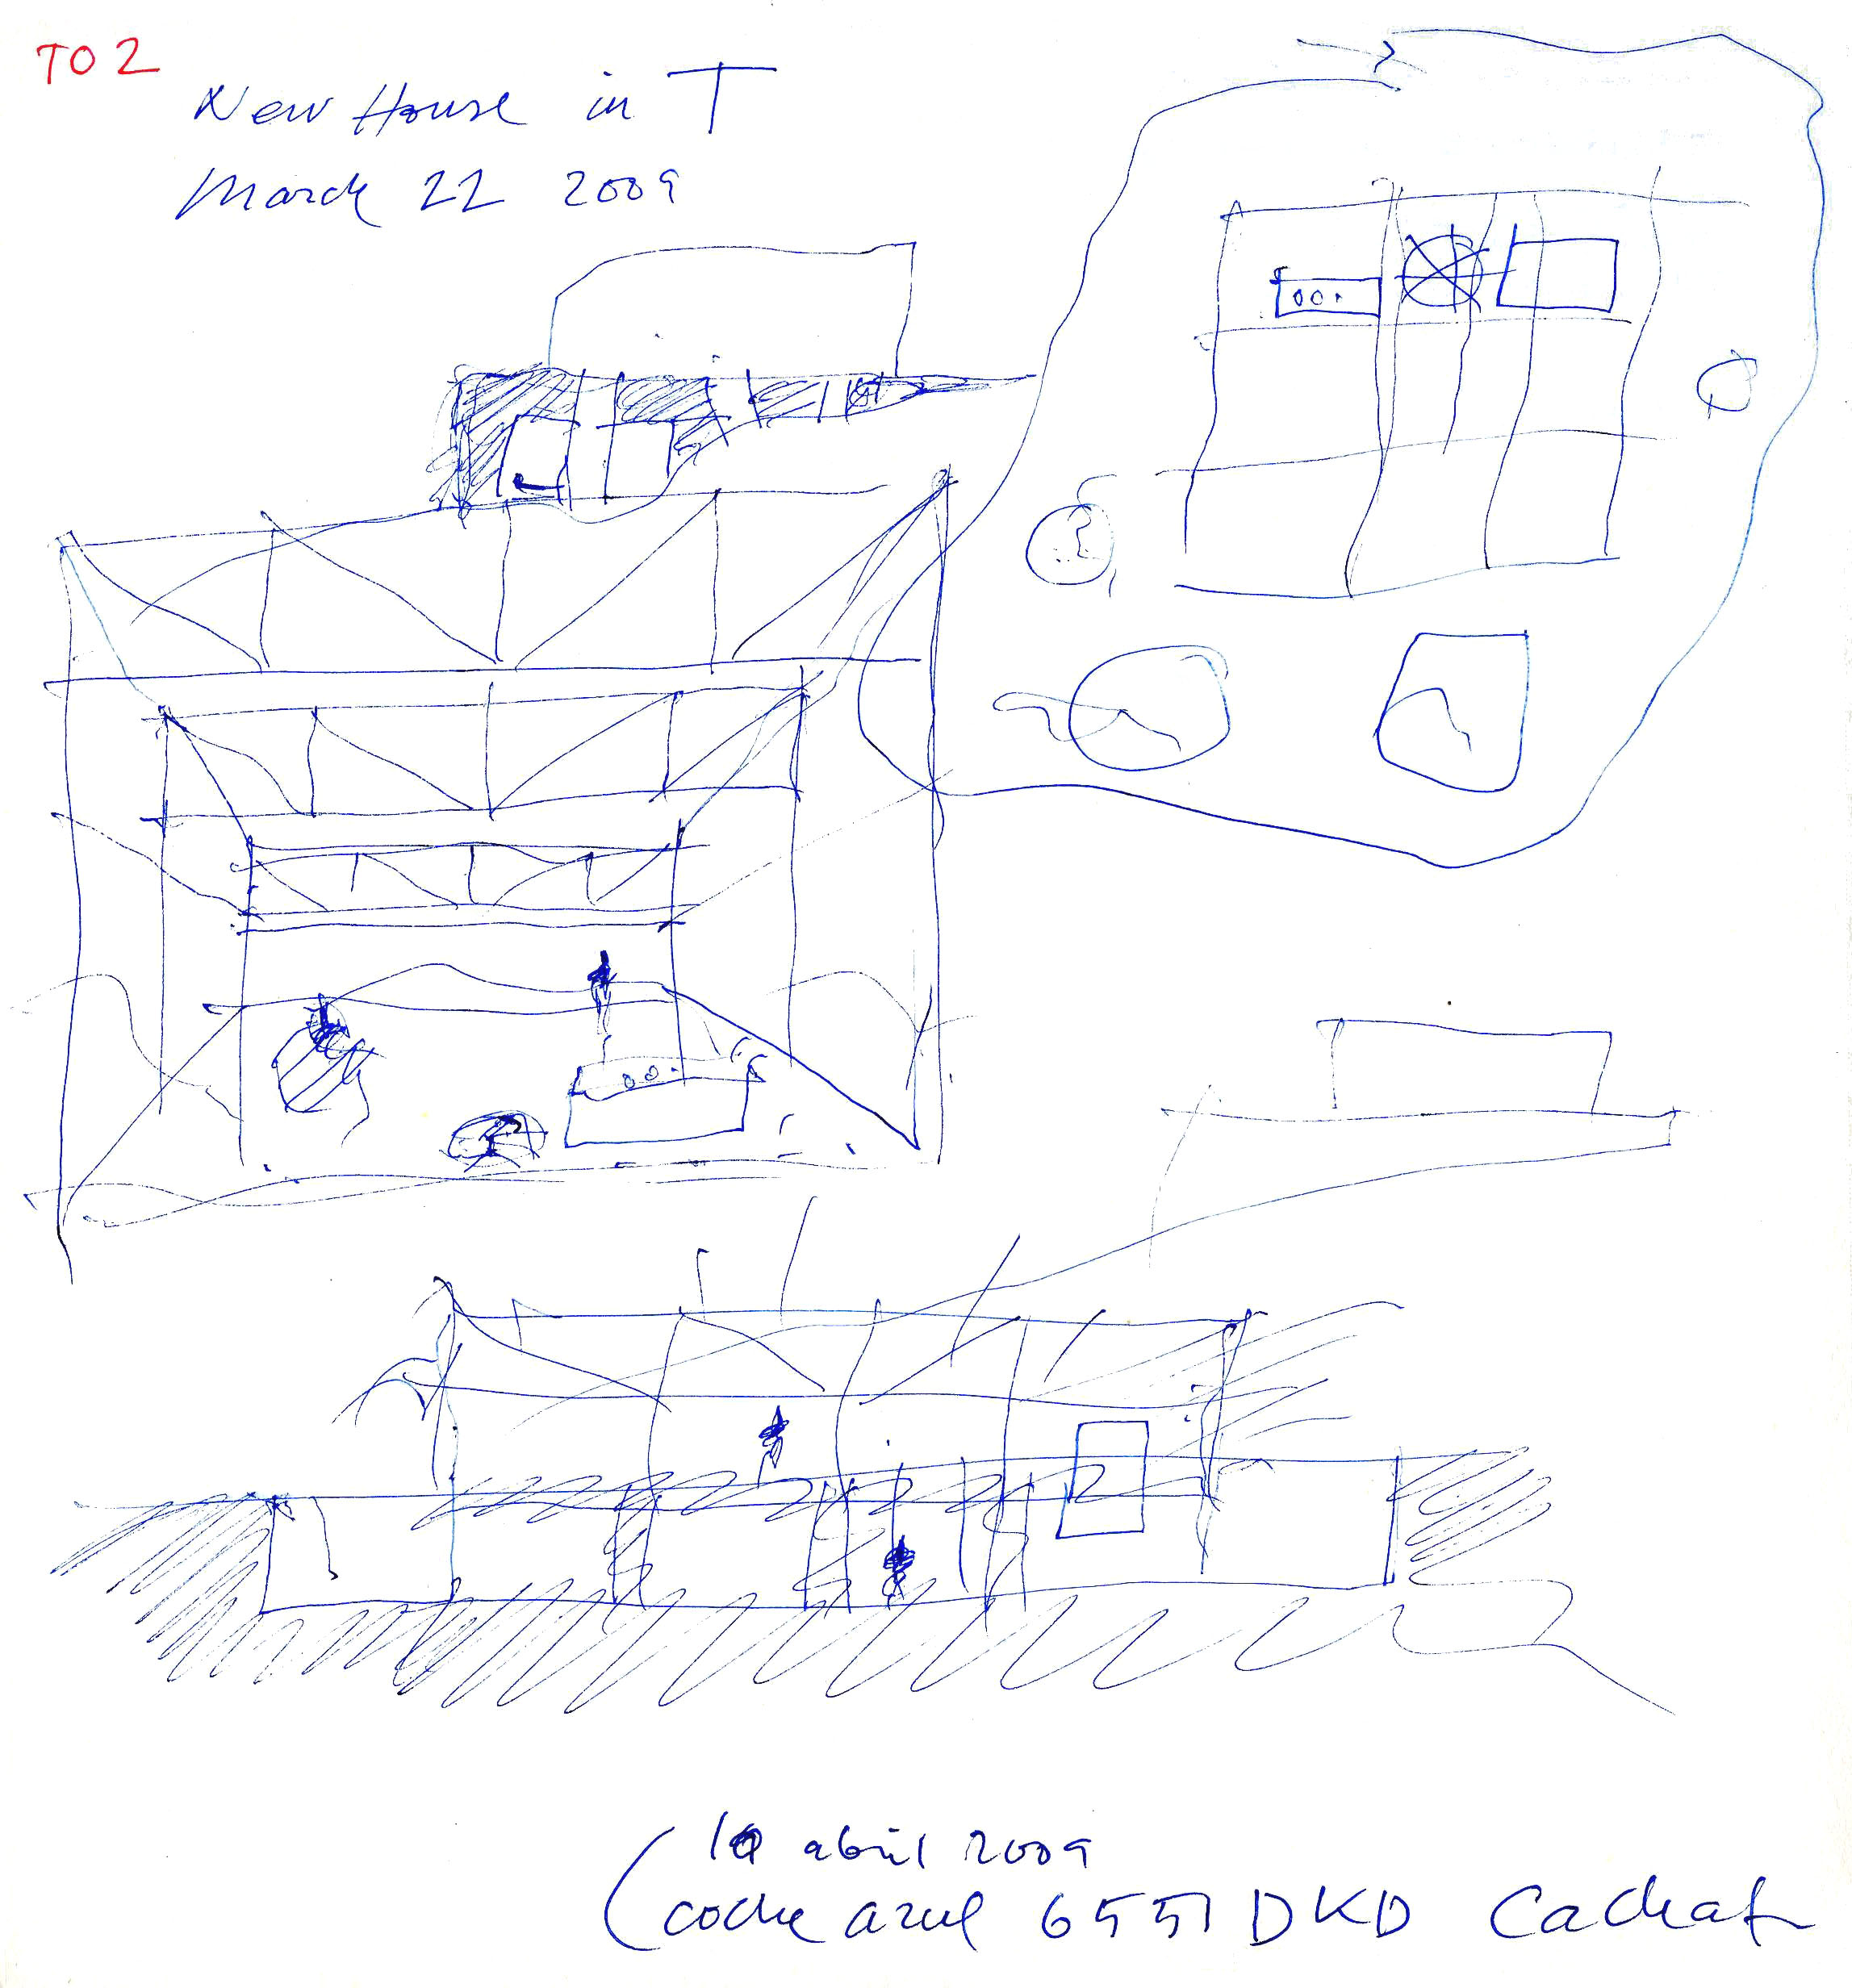 TO 2
New House in T
March 22 2009
abril 2009
coche azul 6551 DKD